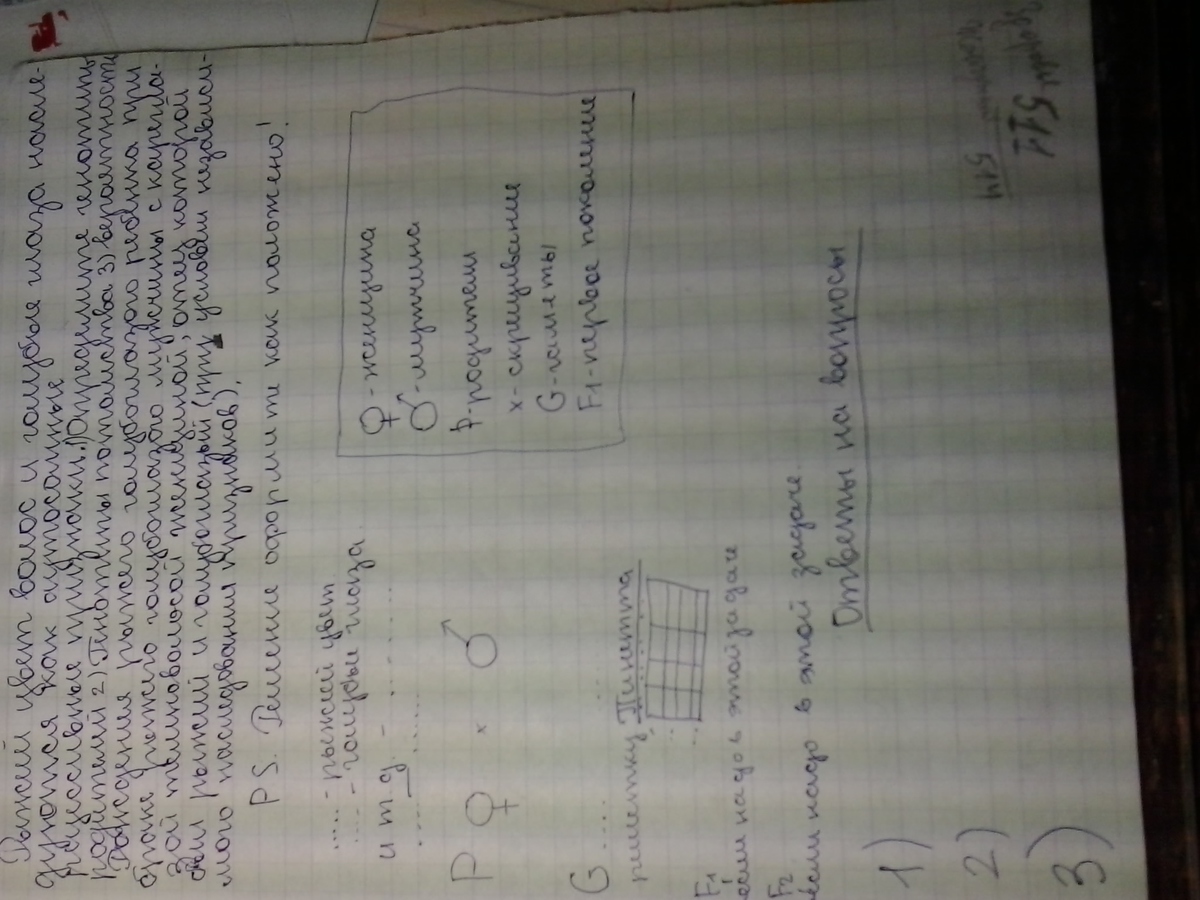 Рыжий цвет волос и голубые глаза насле-
дуются как аутосомные
рецессивные признаки. 1) Определите генотипы
родителей 2) Генотипы потомства 3) вероятность
рождения рыжего голубоглазого ребёнка при
браке рыжего голубоглазого мужчины с кареглa-
зой темноволосой женщиной, отец которой
был рыжий и голубоглазый (при условии независи-
мого наследования признаков).
PS. Решение оформите как положено!
..... - рыжий цвет
..... - голубые глаза
и т д -
♀ - женщина
♂ - мужчина
P - родители
х - скрещивание
G - гаметы
F1 - первое поколение
P ♀ х ♂
G ..... .....
решетку Пиннета
F1
если надо в этой задаче
F2
если надо в этой задаче
Ответы на вопросы
1)
2)
3)